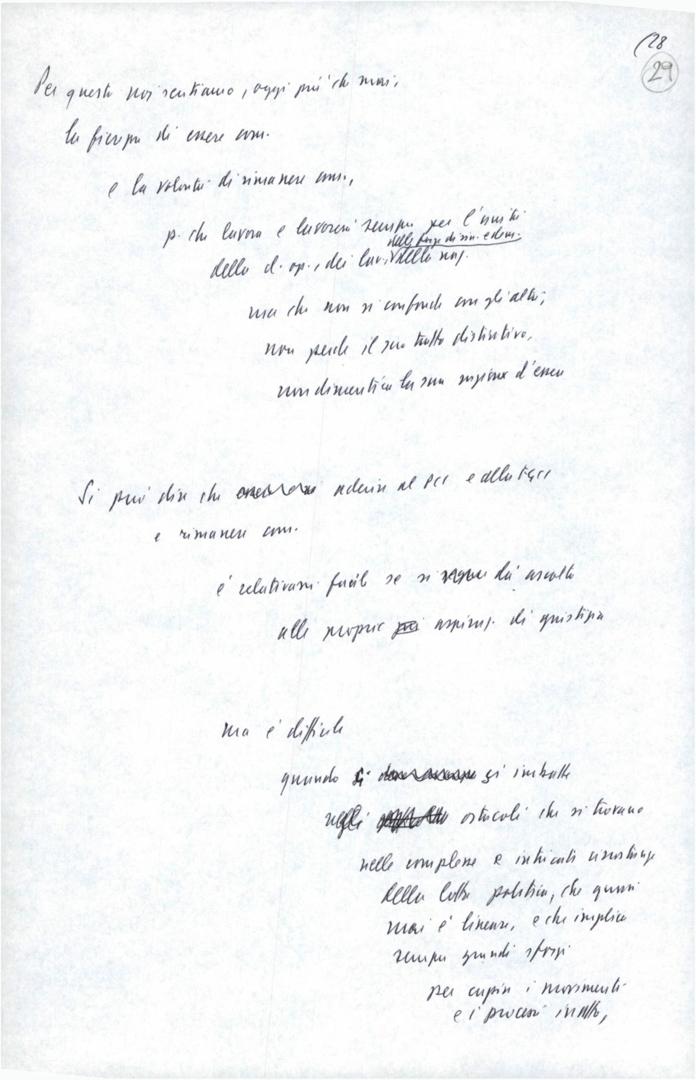 (28
29
Per questo noi sentiamo, oggi più che mai,
la fierezza di essere com.
e la volontà di rimanere com.,
p. che lavora e lavorerà sempre per l'unità
delle forze di sin. e dem.
della cl. op., dei lav., della naz.
ma che non si confonde con gli altri,
non perde il suo tratto distintivo,
non dimentica la sua ragione d'essere
Si può dire che aderire al PCI e alla FGCI
e rimanere com.
è relativam. facile se si dà ascolto
alle proprie aspiraz. di giustizia
ma è difficile
quando ci si imbatte
negli ostacoli che si trovano
nelle complesse e intricate circostanze
della lotta politica, che quasi
mai è lineare, e che implica
sempre grandi sforzi
per capire i movimenti
e i processi in atto,